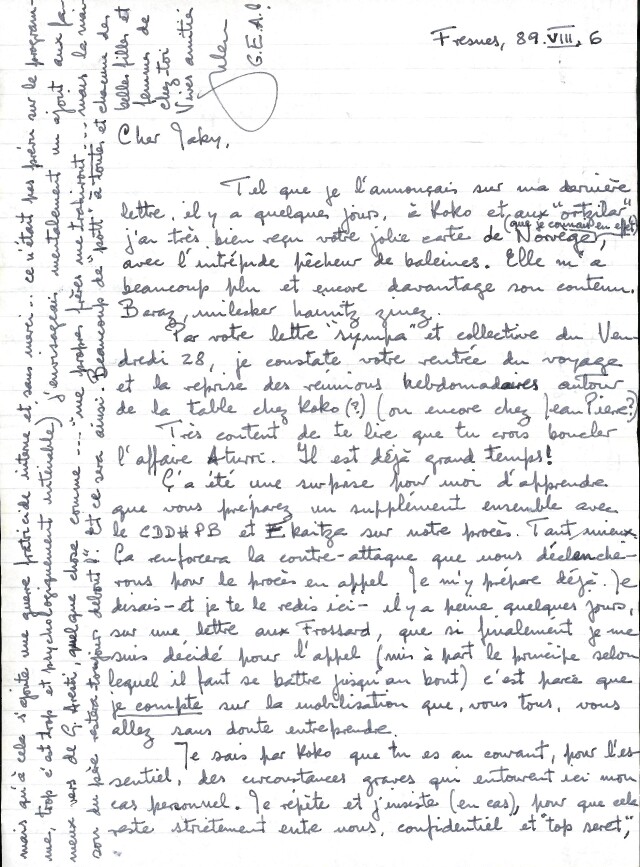 Fresnes, 89.VIII.6
Cher Jaky,
Tel que je l'annonçais sur ma dernière
lettre, il y a quelques jours, à Koko et aux "ortzilar"
(que je connais en effet)
j'ai très bien reçu votre jolie carte de Norvège,
avec l'intrépide pêcheur de baleines. Elle m'a
beaucoup plu et encore davantage son contenu.
Beraz, milesker haunitz zinez.
Par votre lettre "sympa" et collective du Ven-
dredi 28, je constate votre rentrée du voyage
et la reprise des réunions hebdomadaires autour
de la table chez Koko (?) (ou encore chez Jean Pierre?)
Très content de te lire que tu crois boucler
l'affaire Aturri. Il est déjà grand temps!
Ç'a été une surprise pour moi d'apprendre
que vous préparez un supplément ensemble avec
le CDDHPB et Ekaitza sur notre procès. Tant mieux.
Ça renforcera la contre-attaque que nous déclenche-
rons pour le procès en appel. Je m'y prépare déjà. Je
disais - et je te le redis ici - il y a peine quelques jours,
sur une lettre aux Frossard, que si finalement je me
suis décidé pour l'appel (mis à part le principe selon
lequel il faut se battre jusqu'au bout) c'est parce que
je compte sur la mobilisation que, vous tous, vous
allez sans doute entreprendre.
Je sais par Koko que tu es au courant, pour l'es-
sentiel, des circonstances graves qui entourent ici mon
cas personnel. Je répète et j'insiste (en cas), pour que cela
reste strictement entre nous, confidentiel et "top seret",
mais qu'à cela s'ajoute une guerre fratricide interne et sans merci... ce n'était pas prévu sur le program-
me, trop c'est trop et psychologiquement intenable) j'envisageais mentalement un ajout aux fa-
meux vers de G. Aresti, quelque chose comme .... "me propres frères me trahiront... mais la mai-
son du père restera toujour debout!". Et ce sera ainsi. Beaucoup de "pott" à toutes et chacune des
belles filles et
femmes de
chez toi
Vives amitiés
G.E.A!